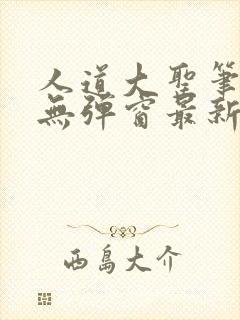 人道大聖筆
無彈窗最新
西島大介